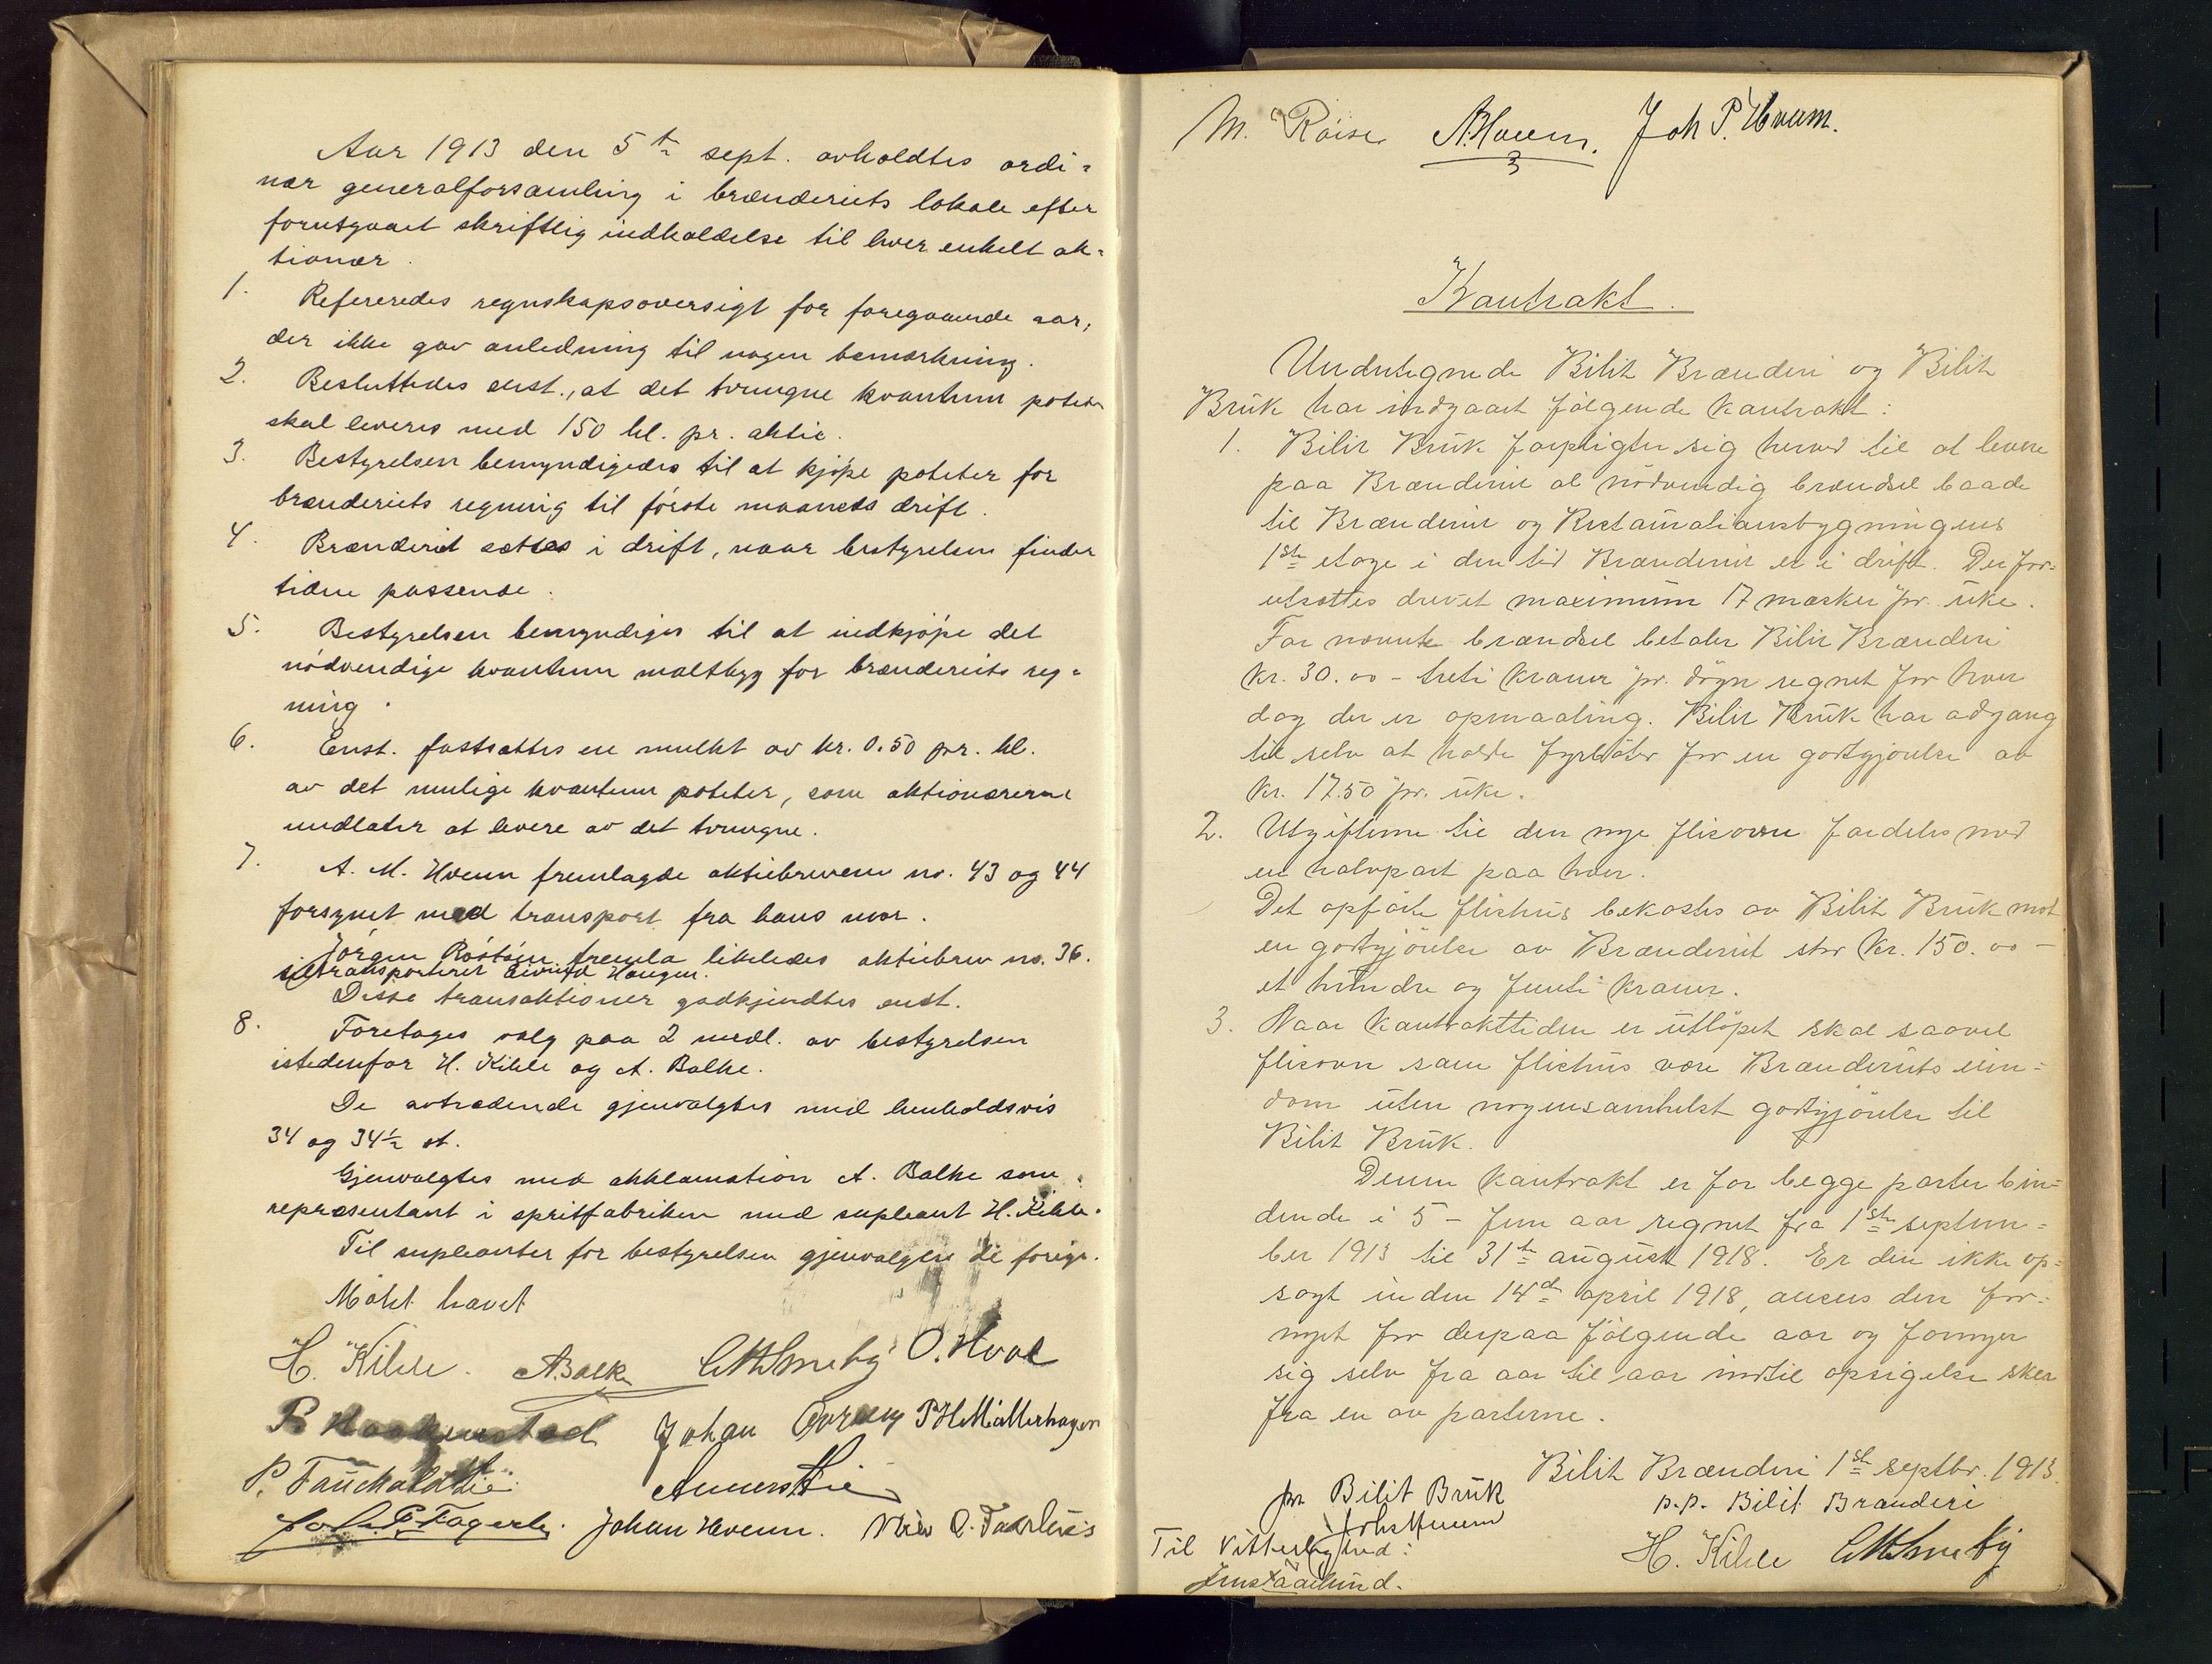 Aar 1913 den 5te sept. avholdtes ordi=
nær generalforsamling i brænderiets lokale efter
forutgaaet skriftlig indkaldelse til hver enkelt ak=
tionær.
1. Refereredes regnskapsoversigt for foregaaende aar,
der ikke gav anledning til nogen bemærkning.
2. Besluttedes enst., at det tvungne kvantum poteter
skal leveres med 150 hl. pr. aktie.
3. Bestyrelsen bemyndigedes til at kjøpe poteter for
brænderiets regning til første maaneds drift.
4. Brænderiet sættes i drift, naar bestyrelsen finder
tiden passende.
5. Bestyrelsen bemyndiges til at indkjøpe det
nødvendige kvantum maltbyg for brænderiets reg=
ning.
6. Enst. fastsattes en mulkt av kr. 0.50 pr. hl.
av det mulige kvantum poteter, som aktionærerne
undlater at levere av det tvungne.
7. A. M. Hveem fremlagde aktiebrevene no. 43 og 44
forsynet med transport fra hans mor.
Jørgen Røstøen fremla likeledes aktiebrev no. 36.
transporteret Eivind Haugen.
Disse transaktioner godkjendtes enst.
8. Foretages valg paa 2 medl. av bestyrelsen
istedenfor H. Kihle og A. Balke.
De avtrædende gjenvalgtes med henholdsvis
34 og 34½ st.
Gjenvalgtes med akklamation A. Balke som
repræsentant i spritfabriken med supleant H. Kihle.
Til supleanter for bestyrelsen gjenvalgtes de forige.
Møtet hævet
H. Kihle. A. Balke O. Hval
P. Haakenstad Johan P. H. Møllerhagen
P. Fauchald
Joh. P. Fagerli. Johan Hveem.
M. Røise A. Hveem. Joh P. Hveem.
Kontrakt.
Undertegnede Bilit Brænderi og Bilit
Bruk har indgaaet følgende kontrakt:
1. Bilit Bruk forpligter sig herved til at levere
paa Brænderiet al nødvendig brændsel baade
til Brænderiet og Restaurationsbygningens
1ste etage i den tid Brænderiet er i drift. Der for=
utsættes drevet maximum 17 mæsker pr. uke.
For nævnte brændsel betaler Bilit Brænderi
kr. 30.00 – treti kroner pr. døgn regnet for hver
dag der er opmaaling. Bilit Bruk har adgang
til selv at holde fyrbøter for en godtgjørelse av
kr. 17.50 pr. uke.
2. Utgifterne til den nye flisovn fordeles med
en halvpart paa hver.
Det opførte flishus bekostes av Bilit Bruk mot
en godtgjørelse av Brænderiet stor kr. 150.00 –
et hundre og femti kroner.
3. Naar kontrakttiden er utløpet skal saavel
flisovn som flishus være Brænderiets eien=
dom uten nogensomhelst godtgjørelse til
Bilit Bruk.
Denne kontrakt er for begge parter bin=
dende i 5 – fem aar regnet fra 1ste septem=
ber 1913 til 31te august 1918. Er den ikke op=
sagt inden 14de april 1918, ansees den for=
nyet for derpaa følgende aar og fornyer
sig selv fra aar til aar indtil opsigelse sker
fra en av parterne.
Bilit Brænderi 1ste septbr. 1913.
pr. Bilit Bruk
p.p. Bilit Brænderi
Joh. Hveem
H. Kihle
Til Vitterlighed: